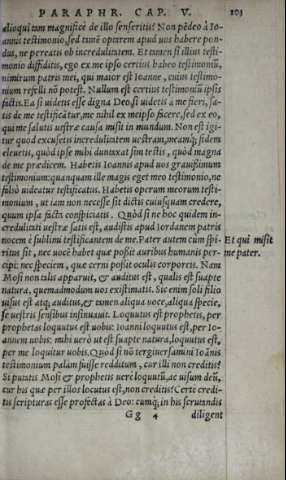 PARAPHR. CAP. V. 103
alioqui tam magnificè de illo senseritis? Non pēdeo à Io-
annis testimonio, sed tamē optarem apud uos habere pon-
dus, ne pereatis ob incredulitatem. Et tamen si illius testi-
monio diffiditis, ego ex me ipso certius habeo testimoniū,
nimirum patris mei, qui maior est Ioanne, cuius testimo-
nium refelli nō potest. Nullum est certius testimoniū ipsis
factis. Ea si uidetis esse digna Deo, si uidetis a me fieri, sa-
tis de me testificātur, me nihil ex meipso facere, sed ex eo,
qui me salutis uestræ causa misit in mundum. Non est igi-
tur quod excusetis incredulitatem uestram, meamq; fidem
eleuetis, quòd ipse mihi duntaxat sim testis, quòd magna
de me prædicem. Habetis Ioannis apud uos grauissimum
testimonium: quanquam ille magis eget meo testimonio, ne
falsò uideatur testificatus. Habetis operum meorum testi-
monium, ut iam non necesse sit dictis cuiusquam credere,
quum ipsa facta conspiciatis. Quòd si ne hoc quidem in-
credulitati uestræ satis est, audistis apud Iordanem patris
uocem è sublimi testificantem de me. Pater autem cum spi-
ritus sit, nec uocē habet quæ possit auribus humanis per-
cipi: nec speciem, quæ cerni possit oculis corporeis. Nam
Et qui misit
me pater.
Mosi non talis apparuit, & auditus est, qualis est suapte
natura, quemadmodum uos existimatis. Sic enim soli filio
uisus est atq; auditus, & tamen aliqua uoce, aliqua specie,
se uestris sensibus insinuauit. Loquutus est prophetis, per
prophetas loquutus est uobis: Ioanni loquutus est, per Io-
annem uobis: mihi uerò ut est suapte natura, loquutus est,
per me loquitur uobis. Quòd si nō tergiuersamini Ioānis
testimonium palam fuisse redditum, cur illi non creditis?
Si putatis Mosi & prophetis uerè loquutū, ac uisum deū,
cur his quæ per illos locutus est, non creditis? Certe credi-
tis scripturas esse profectas à Deo: cumq; in his scrutandis
G g 4 diligent